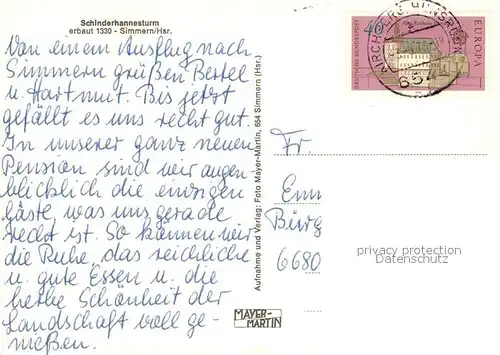 Schinderhannesturm
erbaut 1330 - Simmern/Hsr.
Von einem Ausflug nach
Simmern grüßen Bertel
u. Hartmut. Bis jetzt
gefällt es uns recht gut.
In unserer ganz neuen
Pension sind wir augen-
blicklich die einzigen
Gäste, was uns gerade
recht ist. So können wir
die Ruhe, das reichliche
u. gute Essen u. die
herbe Schönheit der
Landschaft voll ge-
nießen.
Aufnahme und Verlag: Foto Mayer-Martin, 654 Simmern (Hsr.)
MAYER-
MARTIN
DEUTSCHE BUNDESPOST
40
EUROPA
KIRCHBERG HUNSRÜCK
654
Fr.
Emm
Bürg
6680
privacy protection
Datenschutz